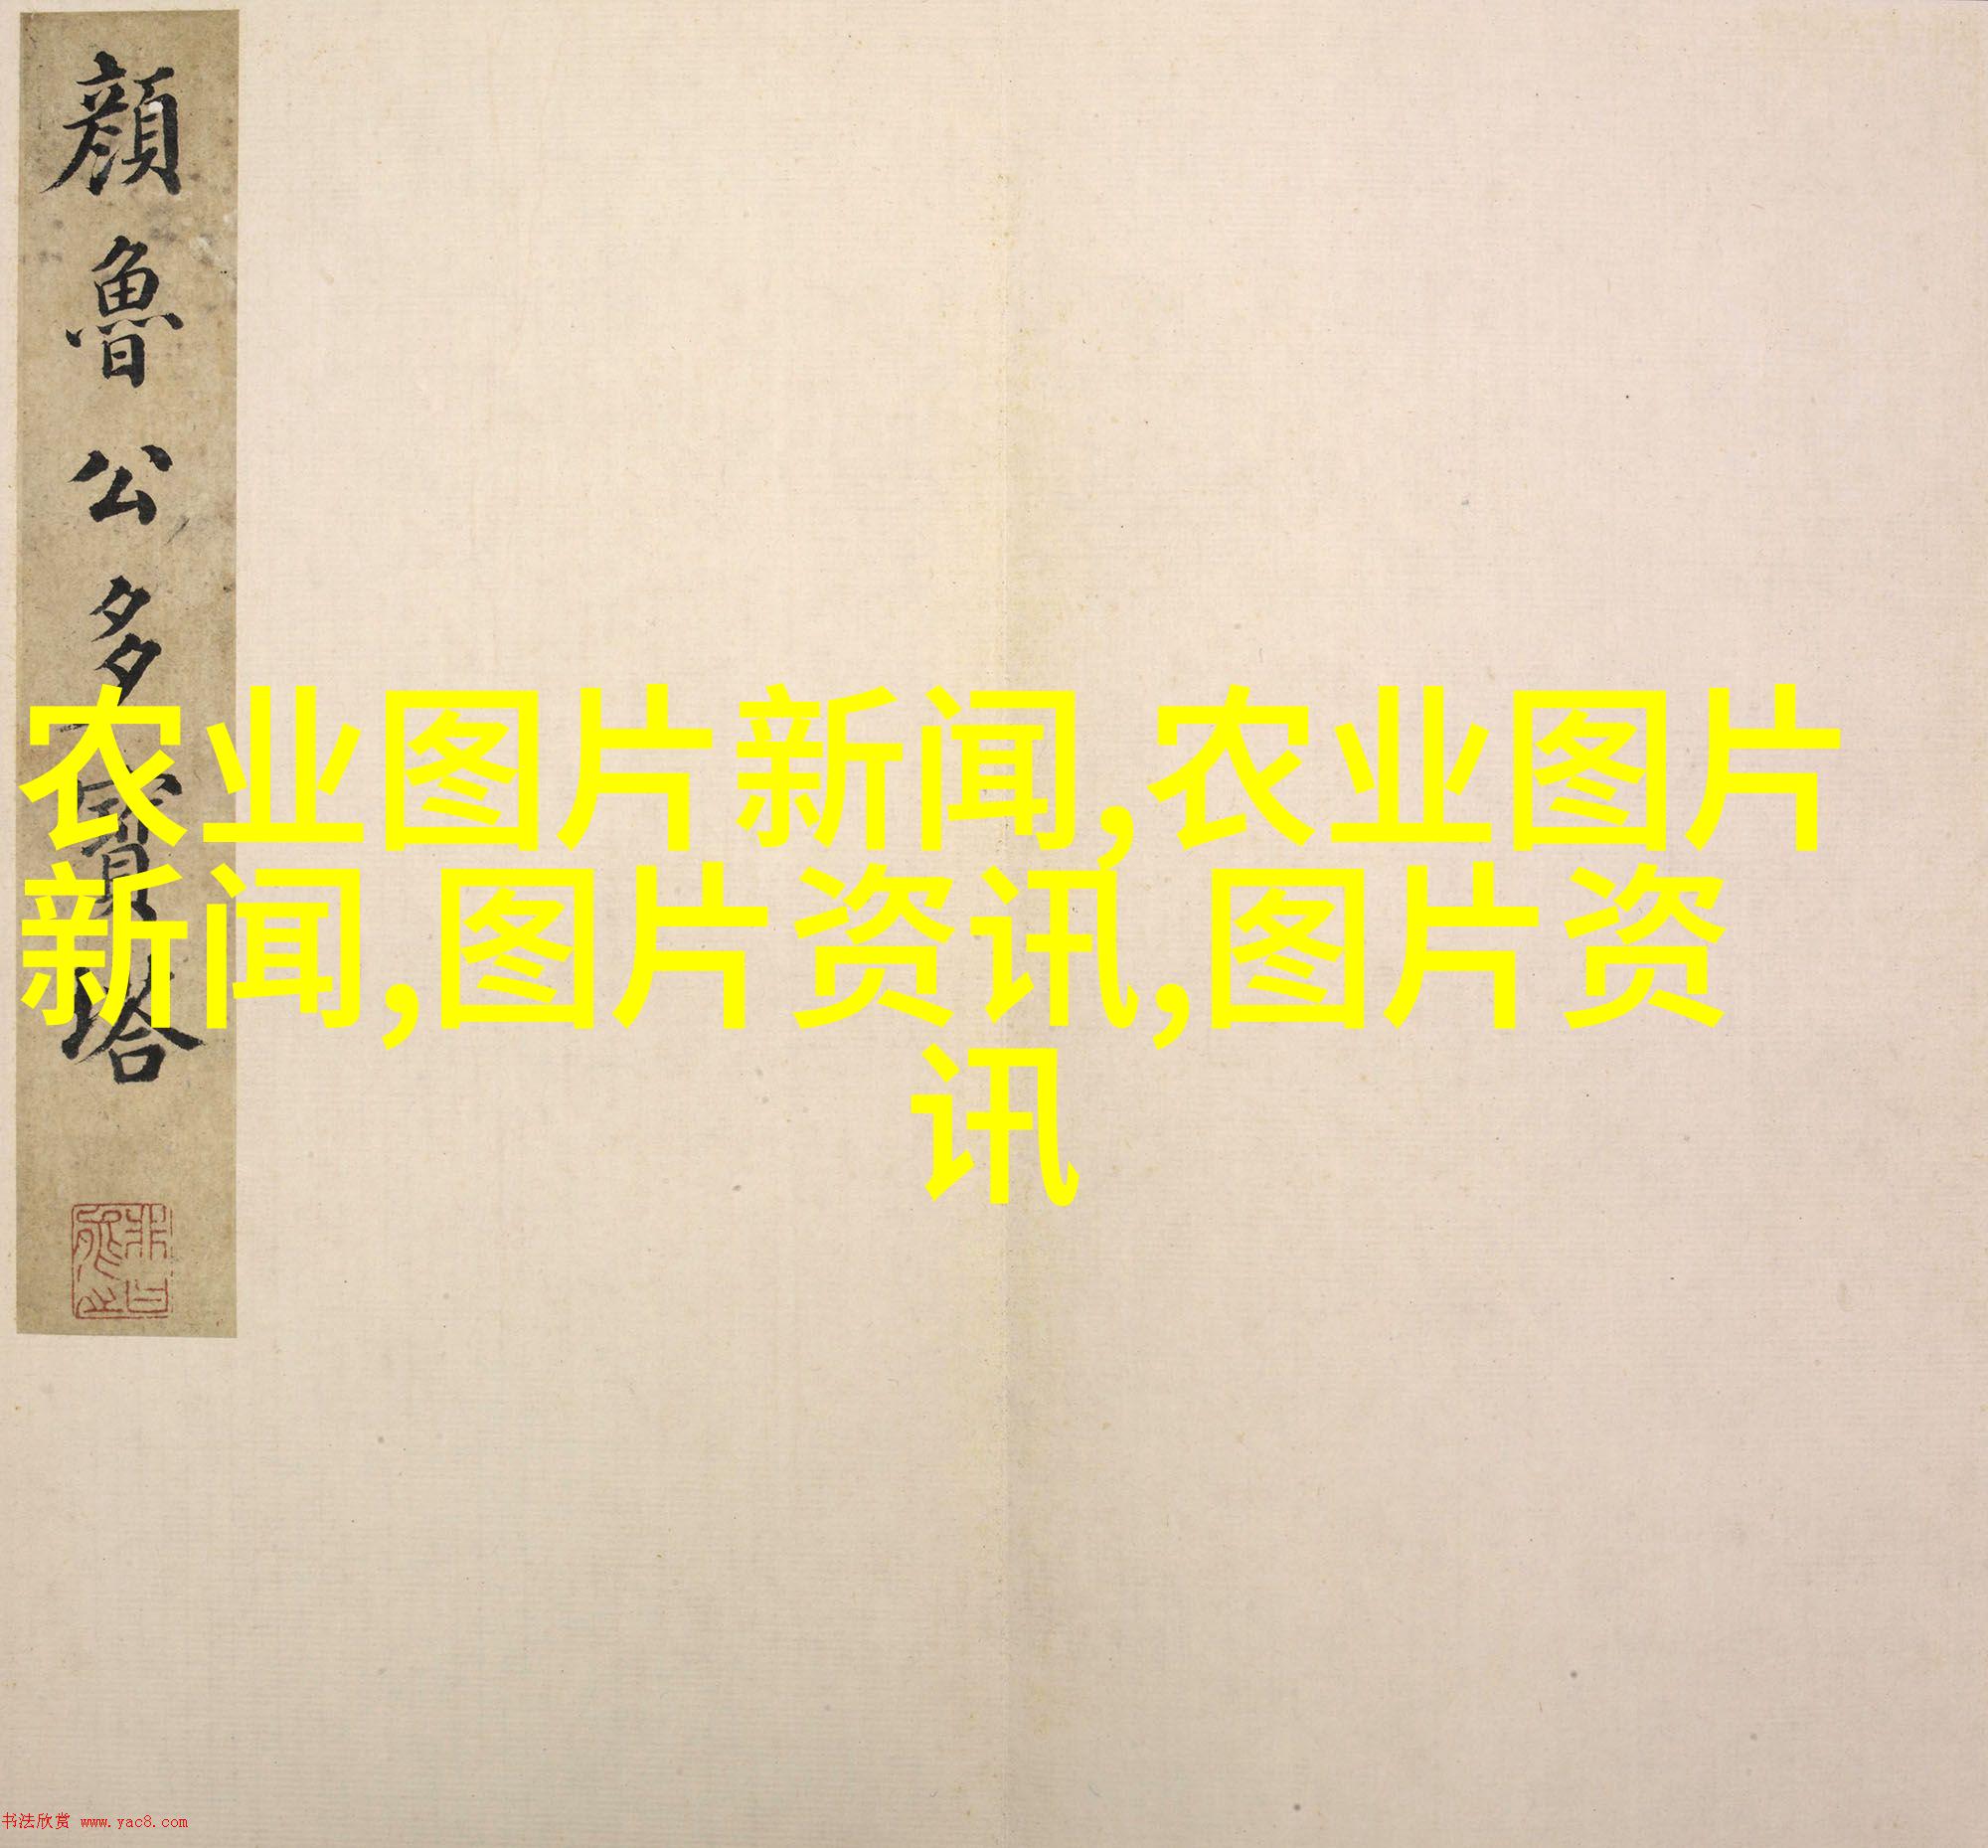 顔魯公多寶塔
农业图片新闻,农业图片
新闻,图片资讯,图片资
讯
书法欣赏 www.yac8.com